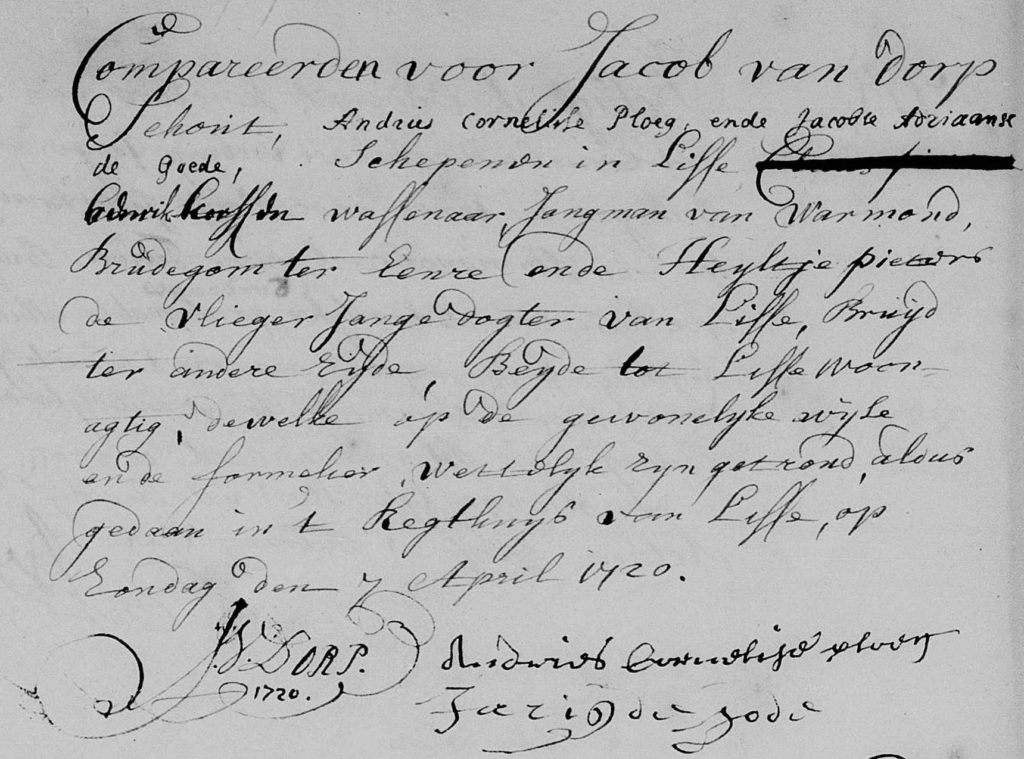 Compareerden voor Jacob van dorp
Schout, Andries Cornelisse Ploeg, ende Jacobse Adriaanse
de Goede, Schepenen in Lisse
wassenaar, Jongman van Warmond,
Brudegom ter Eenre ende Heyltje pieters
de vlieger Jonge dogter van Lisse, Bruijd
ter andere Eijde, Beyde tot Lisse woon-
agtig, dewelke op de gewonelyke wyse
ende formelier, wettelyk zyn getroud, aldus
gedaan in 't Regthuys van Lisse, op
Zondag den 7 April 1720.
J.V. DORP.
1720.
Andries Cornelise ploeg
de gode